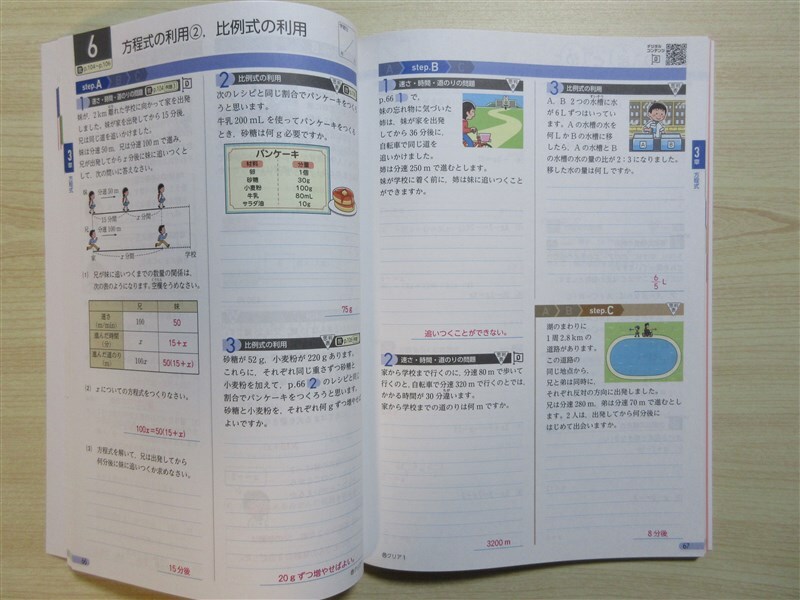 6
方程式の利用②, 比例式の利用
step.A
1 速さ・時間・道のりの問題
妹が, 2km離れた学校に向かって家を出発
しました。妹が家を出発してから15分後,
兄は同じ道を追いかけました。
妹は分速50m, 兄は分速100mで進み,
兄が出発してからx分後に妹に追いつくと
して, 次の問いに答えなさい。
分速50m
15分間
x分間
分速100m
x分間
家
学校
(1) 兄が妹に追いつくまでの数量の関係は,
次の表のようになります。空欄をうめなさい。
兄 妹
速さ (m/min) 100 50
進んだ時間 (分) x 15+x
進んだ道のり (m) 100x 50(15+x)
(2) xについての方程式をつくりなさい。
100x=50(15+x)
(3) 方程式を解いて, 兄は出発してから
何分後に妹に追いつくか求めなさい。
15分後
66
3章
方程式
2 比例式の利用
次のレシピと同じ割合でパンケーキをつくろ
うと思います。
牛乳200mLを使ってパンケーキをつくる
とき, 砂糖は何g必要ですか。
パンケーキ
材料 分量
卵 1個
砂糖 30g
小麦粉 100g
牛乳 80mL
サラダ油 10g
75g
3 比例式の利用
砂糖が52g, 小麦粉が220gあります。
これらに, それぞれ同じ重さずつ砂糖と
小麦粉を加えて, p.66 2 のレシピと同じ
割合でパンケーキをつくろうと思います。
砂糖と小麦粉を, それぞれ何gずつ増やせば
よいですか。
20gずつ増やせばよい。
A step.B C
デジタル
コンテンツ
1 速さ・時間・道のりの問題
p.66 1 で,
妹の忘れ物に気づいた
姉は, 妹が家を出発
してから36分後に,
自転車で同じ道を
追いかけました。
姉は分速250mで進むとします。
妹が学校に着く前に, 姉は妹に追いつくこと
ができますか。
追いつくことができない。
2 速さ・時間・道のりの問題
家から学校まで行くのに, 分速80mで歩いて
行くのと, 自転車で分速320mで行くのとでは,
かかる時間が30分違います。
家から学校までの道のりは何mですか。
3200m
3 比例式の利用
A, B 2つの水槽に水
が6Lずつはいってい
ます。Aの水槽の水を
何LかBの水槽に移
したら, Aの水槽とB
の水槽の水の量の比が2:3になりました。
移した水の量は何Lですか。
6/5 L
A B step.C
湖のまわりに
1周2.8kmの
道路があります。
この道路の
同じ地点から,
兄と弟は同時に,
それぞれ反対の方向に出発しました。
兄は分速280m, 弟は分速70mで進むとし
ます。2人は, 出発してから何分後に
はじめて出会いますか。
8分後
3章
方程式
67